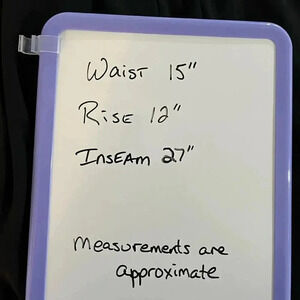 Waist 15"
Rise 12"
Inseam 27"
Measurements are
approximate